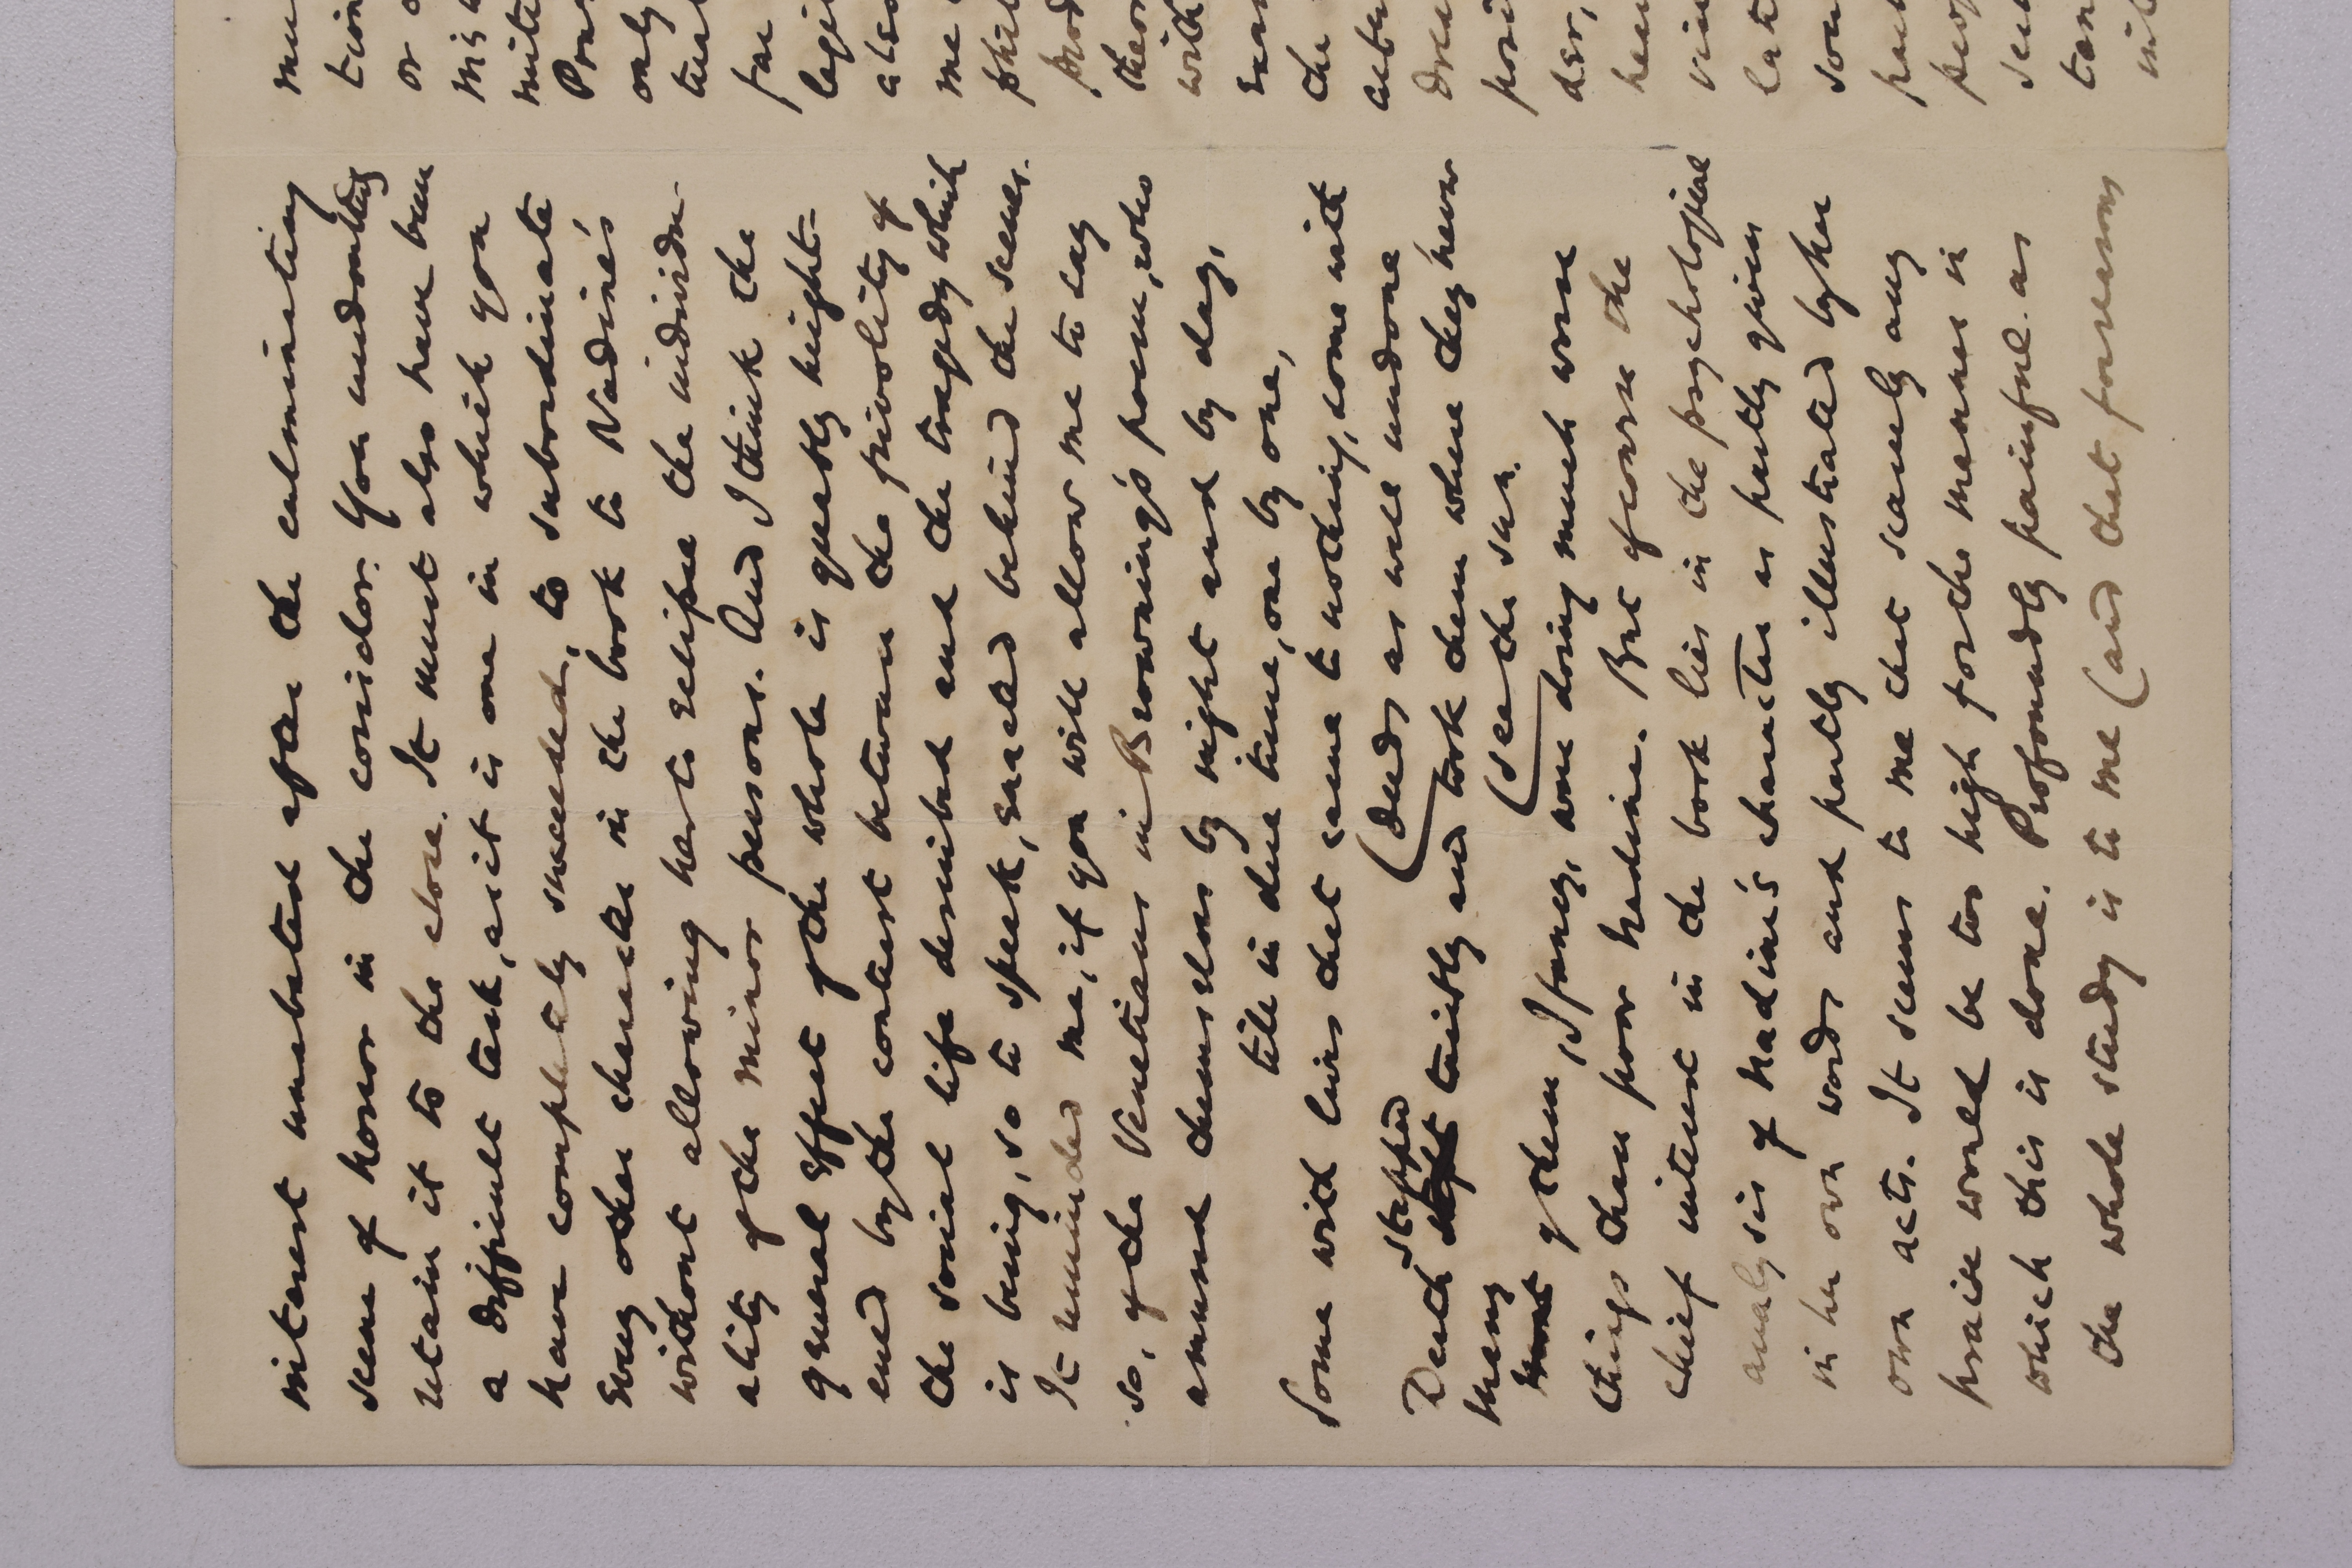 interest unabated after the culminating
scene of horror in the corridor. You undoubtedly
retain it to the close. It must also have been
a difficult task, as it is one in which you
have completely succeeded, to subordinate
every other character in the book to Nadine's
without allowing her to eclipse the individu-
ality of the minor persons. And I think the
general effect of the whole is greatly height-
ened by the contrast between the frivolity of
the social life described and the tragedy which
is being, so to speak, enacted behind the scenes.
It reminded me, if you will allow me to say
so, of the Venetians in Browning's poem, who
amused themselves by night and by day,
till in due time, one by one,
Some with lives that came to nothing, some with
(deeds as well undone
Death slept stepped tacitly and took them where they never
(see the sun.
Most many of them, I fancy, were doing much worse
things than poor Nadine. But of course the
chief interest in the book lies in the psychological
analysis of Nadine's character as partly given
in her own words and partly illustrated by her
own acts. It seems to me that scarcely any
praise would be too high for the manner in
which this is done. Profoundly painful as
the whole study is to me (and that for reasons
tion
or o
only
far
me
with
the